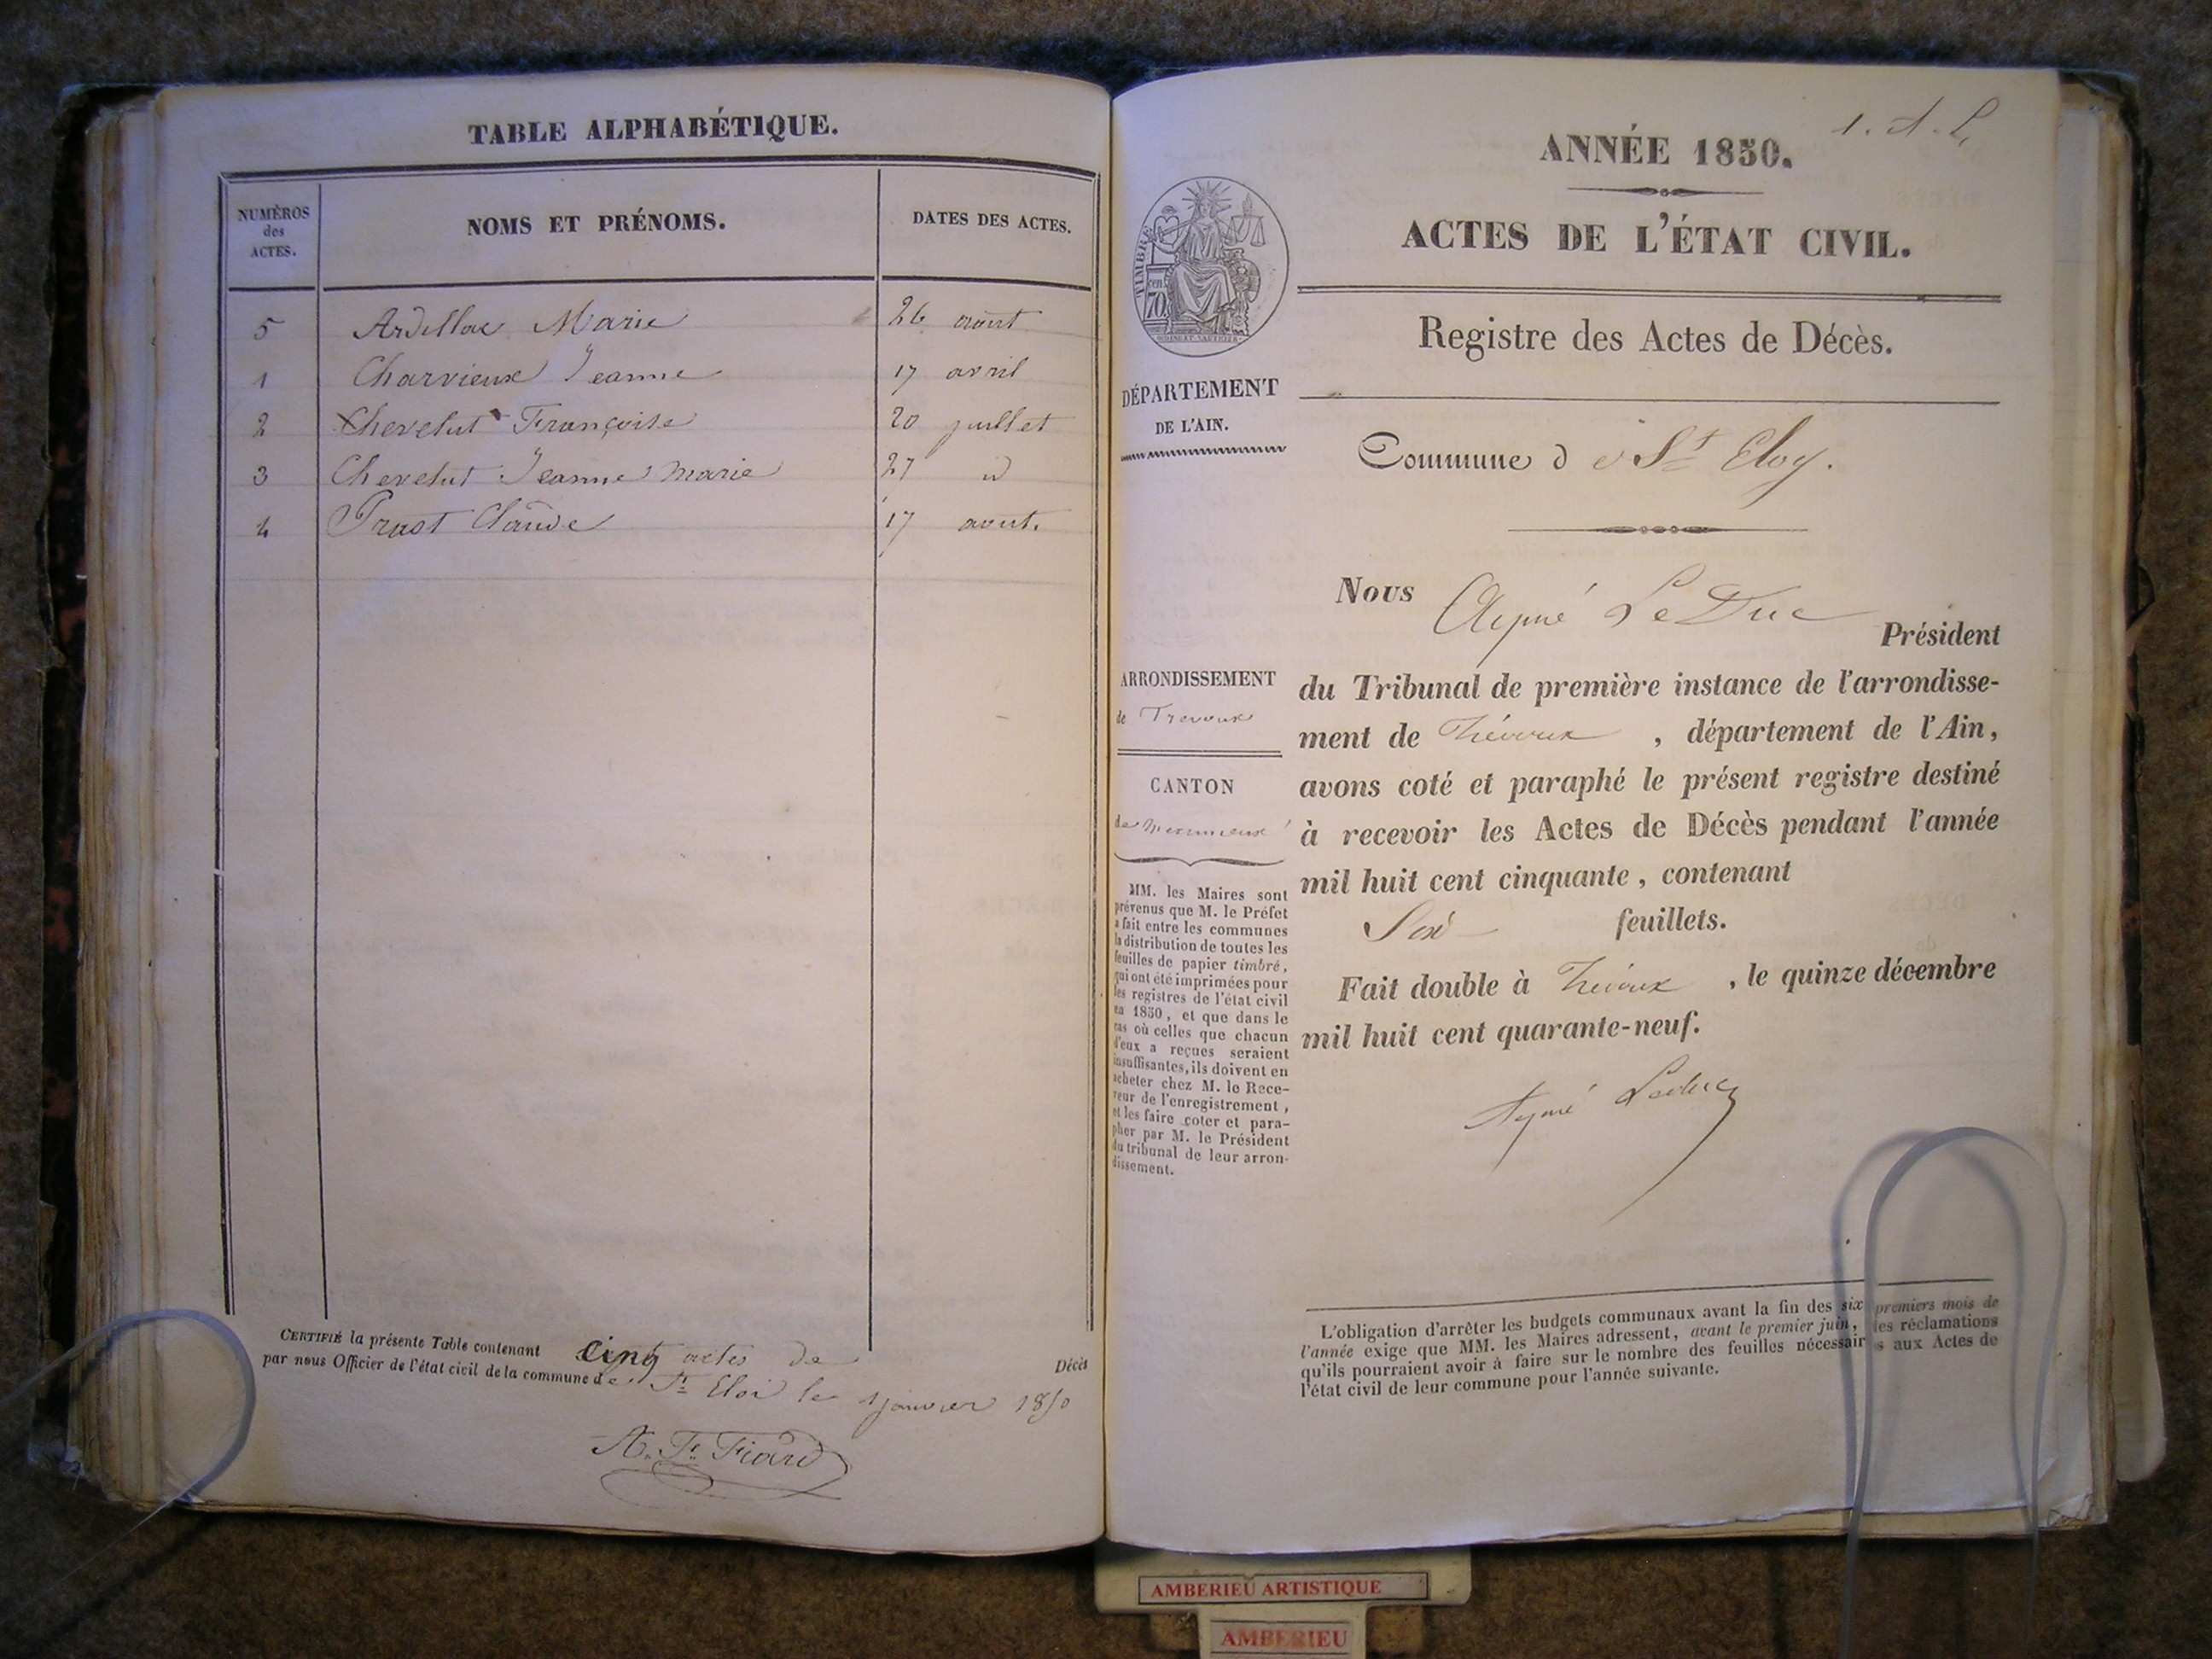 TABLE ALPHABÉTIQUE.
NUMÉROS
des
ACTES.
NOMS ET PRÉNOMS.
DATES DES ACTES.
5 Ardillac Marie 26 août
1 Charvieux Jeanne 17 avril
2 Chevelut Françoise 20 juillet
3 Chevelut Jeanne Marie 27 id
4 Prast Claude 17 aout.
CERTIFIÉ la présente Table contenant Cinq actes de Décès
par nous Officier de l'état civil de la commune de St Eloi le 1 janvier 1850
1. A. L.
ANNÉE 1850.
ACTES DE L'ÉTAT CIVIL.
TIMBRE
70
cen.
Registre des Actes de Décès.
DÉPARTEMENT
DE L'AIN.
Commune d e St Eloy.
Nous Aymé LeDuc Président
du Tribunal de première instance de l'arrondisse-
ment de Trévoux , département de l'Ain,
avons coté et paraphé le présent registre destiné
à recevoir les Actes de Décès pendant l'année
mil huit cent cinquante, contenant
Six feuillets.
Fait double à Trévoux , le quinze décembre
mil huit cent quarante-neuf.
Aymé Leduc
ARRONDISSEMENT
de Trevoux
CANTON
de Meximieux
MM. les Maires sont
prévenus que M. le Préfet
a fait entre les communes
la distribution de toutes les
feuilles de papier timbré,
qui ont été imprimées pour
les registres de l'état civil
en 1850, et que dans le
cas où celles que chacun
d'eux a reçues seraient
insuffisantes, ils doivent en
acheter chez M. le Rece-
veur de l'enregistrement,
et les faire coter et para-
pher par M. le Président
du tribunal de leur arron-
dissement.
L'obligation d'arrêter les budgets communaux avant la fin des six premiers mois de
l'année exige que MM. les Maires adressent, avant le premier juin, les réclamations
qu'ils pourraient avoir à faire sur le nombre des feuilles nécessaires aux Actes de
l'état civil de leur commune pour l'année suivante.
AMBERIEU ARTISTIQUE
AMBERIEU